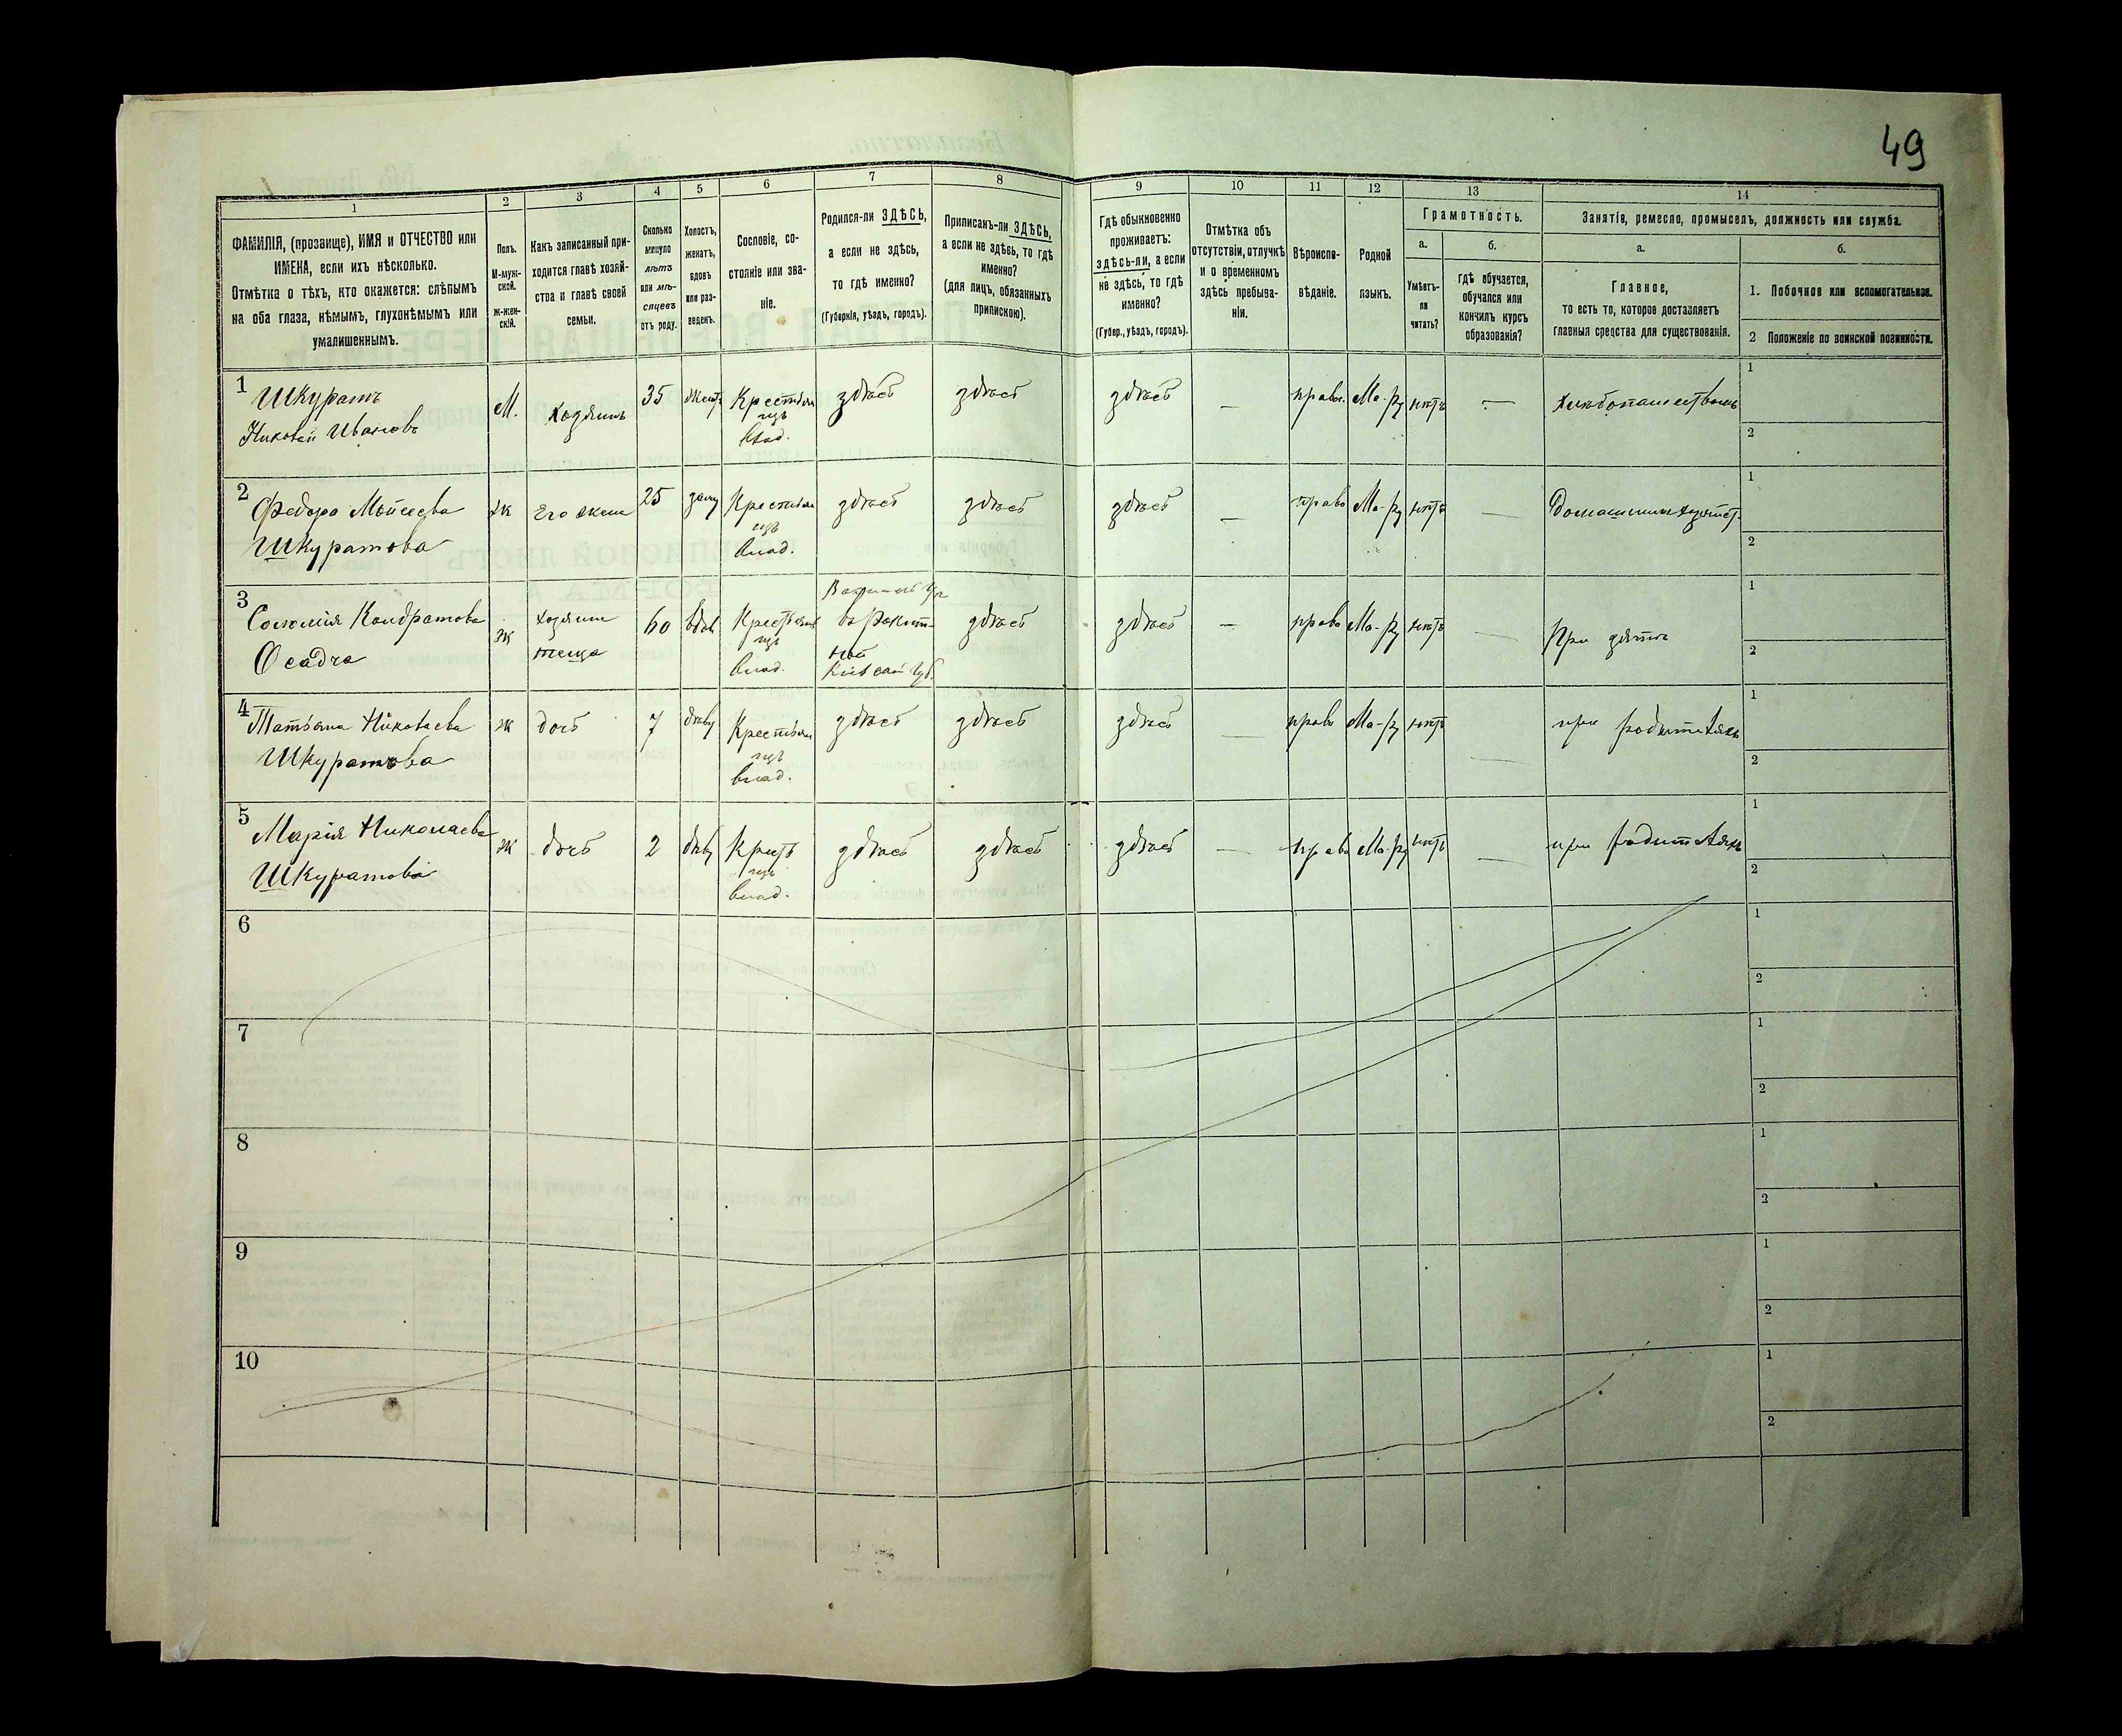 49
1
2
3
4
5
6
7
8
9
10
11
12
13
14
ФАМИЛІЯ, (прозвище), ИМЯ и ОТЧЕСТВО или
ИМЕНА, если ихъ нѣсколько.
Отмѣтка о тѣхъ, кто окажется: слѣпымъ
на оба глаза, нѣмымъ, глухонѣмымъ или
умалишеннымъ.
Полъ.
М-муж-
ской.
Ж-жен-
скій.
Какъ записанный при-
ходится главѣ хозяй-
ства и главѣ своей
семьи.
Сколько
минуло
лѣтъ
или мѣ-
сяцевъ
отъ роду.
Холостъ,
женатъ,
вдовъ
или раз-
веденъ.
Сословіе, со-
стояніе или зва-
ніе.
Родился-ли ЗДѢСЬ,
а если не здѣсь,
то гдѣ именно?
(Губернія, уѣздъ, городъ).
Приписанъ-ли ЗДѢСЬ,
а если не здѣсь, то гдѣ
именно?
(для лицъ, обязанныхъ
припискою).
Гдѣ обыкновенно
проживаетъ:
здѣсь-ли, а если
не здѣсь, то гдѣ
именно?
(Губер., уѣздъ, городъ).
Отмѣтка объ
отсутствіи, отлучкѣ
и о временномъ
здѣсь пребыва-
ніи.
Вѣроиспо-
вѣданіе.
Родной
языкъ.
Грамотность.
а.
Умѣетъ-
ли
читать?
б.
гдѣ обучается,
обучался или
кончилъ курсъ
образованія?
Занятія, ремесло, промыселъ, должность или служба.
а.
Главное,
то есть то, которое доставляетъ
главныя средства для существованія.
б.
1. Побочное или вспомогательное.
2 Положеніе по воинской повинности.
1
Шкуратъ
Николай Ивановъ
М.
Хозяинъ
35
женат
Крестьян
изъ
влад.
здѣсь
здѣсь
здѣсь
—
правос.
Ма-ру
нѣтъ
—
Хлѣбопашествомъ
1
2
2
Федора Моисеева
Шкуратова
Ж
Его жена
25
заму
Крестьян
изъ
влад.
здѣсь
здѣсь
здѣсь
—
право
Ма-ру
нѣтъ
—
1
2
3
Соломія Кондратова
Осадча
Ж
хозяина
теща
60
вдов
Крестьян
изъ
влад.
Кіевской губ.
здѣсь
здѣсь
—
право
Ма-ру
нѣтъ
—
При
1
2
4
Татьяна Николаева
Шкуратова
Ж
дочь
7
дѣву
Крестьян
изъ
влад.
здѣсь
здѣсь
здѣсь
—
право
Ма-ру
нѣтъ
—
при родителяхъ
1
2
5
Марія Николаева
Шкуратова
Ж
дочь
2
дѣву
Крест
изъ
влад.
здѣсь
здѣсь
здѣсь
—
право
Ма-ру
нѣтъ
—
при родителяхъ
1
2
6
1
2
7
1
2
8
1
2
9
1
2
10
1
2